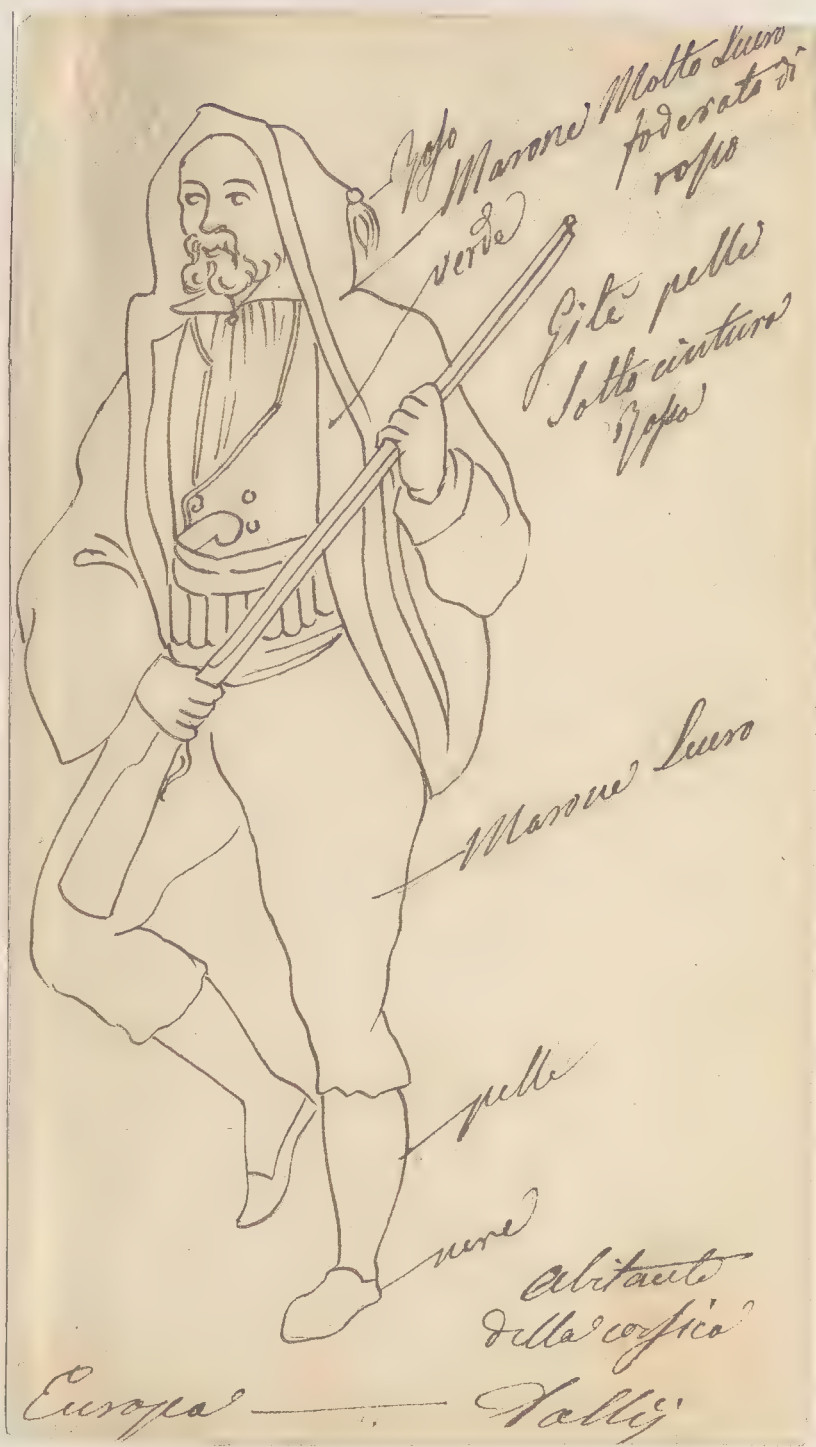 Roso
Marone Molto Scuro
foderato di
rosso
verde
Gilè pelle
Sotto cintura
Rossa
Marone Scuro
pelle
nere
abitante
della corsica
Europa —